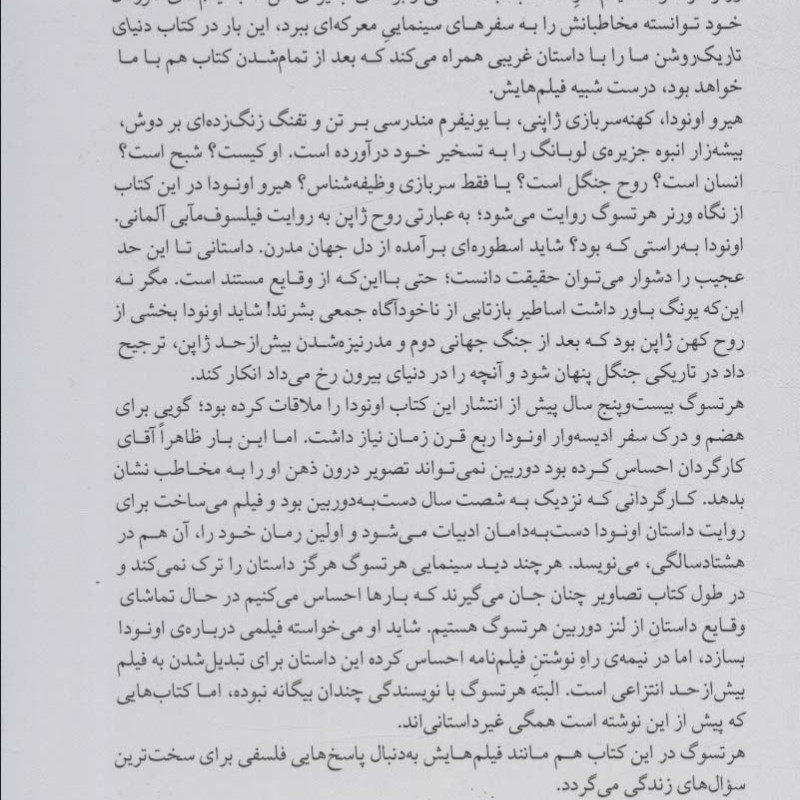 خود توانسته مخاطبانش را به سفرهای سینماییِ معرکه‌ای ببرد، این بار در کتاب دنیای
تاریک‌روشن ما را با داستان غریبی همراه می‌کند که بعد از تمام‌شدن کتاب هم با ما
خواهد بود، درست شبیه فیلم‌هایش.
هیرو اونودا، کهنه‌سربازی ژاپنی، با یونیفرم مندرسی بر تن و تفنگ زنگ‌زده‌ای بر دوش،
بیشه‌زار انبوه جزیره‌ی لوبانگ را به تسخیر خود درآورده است. او کیست؟ شبح است؟
انسان است؟ روح جنگل است؟ یا فقط سربازی وظیفه‌شناس؟ هیرو اونودا در این کتاب
از نگاه ورنر هرتسوگ روایت می‌شود؛ به عبارتی روح ژاپن به روایت فیلسوف‌مآبی آلمانی.
اونودا به‌راستی که بود؟ شاید اسطوره‌ای برآمده از دل جهان مدرن. داستانی تا این حد
عجیب را دشوار می‌توان حقیقت دانست؛ حتی بااین‌که از وقایع مستند است. مگر نه
این‌که یونگ باور داشت اساطیر بازتابی از ناخودآگاه جمعی بشرند! شاید اونودا بخشی از
روح کهن ژاپن بود که بعد از جنگ جهانی دوم و مدرنیزه‌شدن بیش‌ازحد ژاپن، ترجیح
داد در تاریکی جنگل پنهان شود و آنچه را در دنیای بیرون رخ می‌داد انکار کند.
هرتسوگ بیست‌وپنج سال پیش از انتشار این کتاب اونودا را ملاقات کرده بود؛ گویی برای
هضم و درک سفر ادیسه‌وار اونودا ربع قرن زمان نیاز داشت. اما این بار ظاهراً آقای
کارگردان احساس کرده بود دوربین نمی‌تواند تصویر درون ذهن او را به مخاطب نشان
بدهد. کارگردانی که نزدیک به شصت سال دست‌به‌دوربین بود و فیلم می‌ساخت برای
روایت داستان اونودا دست‌به‌دامان ادبیات می‌شود و اولین رمان خود را، آن هم در
هشتادسالگی، می‌نویسد. هرچند دید سینمایی هرتسوگ هرگز داستان را ترک نمی‌کند و
در طول کتاب تصاویر چنان جان می‌گیرند که بارها احساس می‌کنیم در حال تماشای
وقایع داستان از لنز دوربین هرتسوگ هستیم. شاید او می‌خواسته فیلمی درباره‌ی اونودا
بسازد، اما در نیمه‌ی راهِ نوشتنِ فیلم‌نامه احساس کرده این داستان برای تبدیل‌شدن به فیلم
بیش‌ازحد انتزاعی است. البته هرتسوگ با نویسندگی چندان بیگانه نبوده، اما کتاب‌هایی
که پیش از این نوشته است همگی غیرداستانی‌اند.
هرتسوگ در این کتاب هم مانند فیلم‌هایش به‌دنبال پاسخ‌هایی فلسفی برای سخت‌ترین
سؤال‌های زندگی می‌گردد.